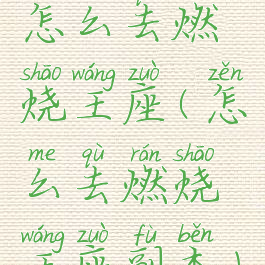 怎么去燃
shāo wáng zuò zěn
烧王座(怎
me qù rán shāo
么去燃烧
wáng zuò fù běn
王座副本)